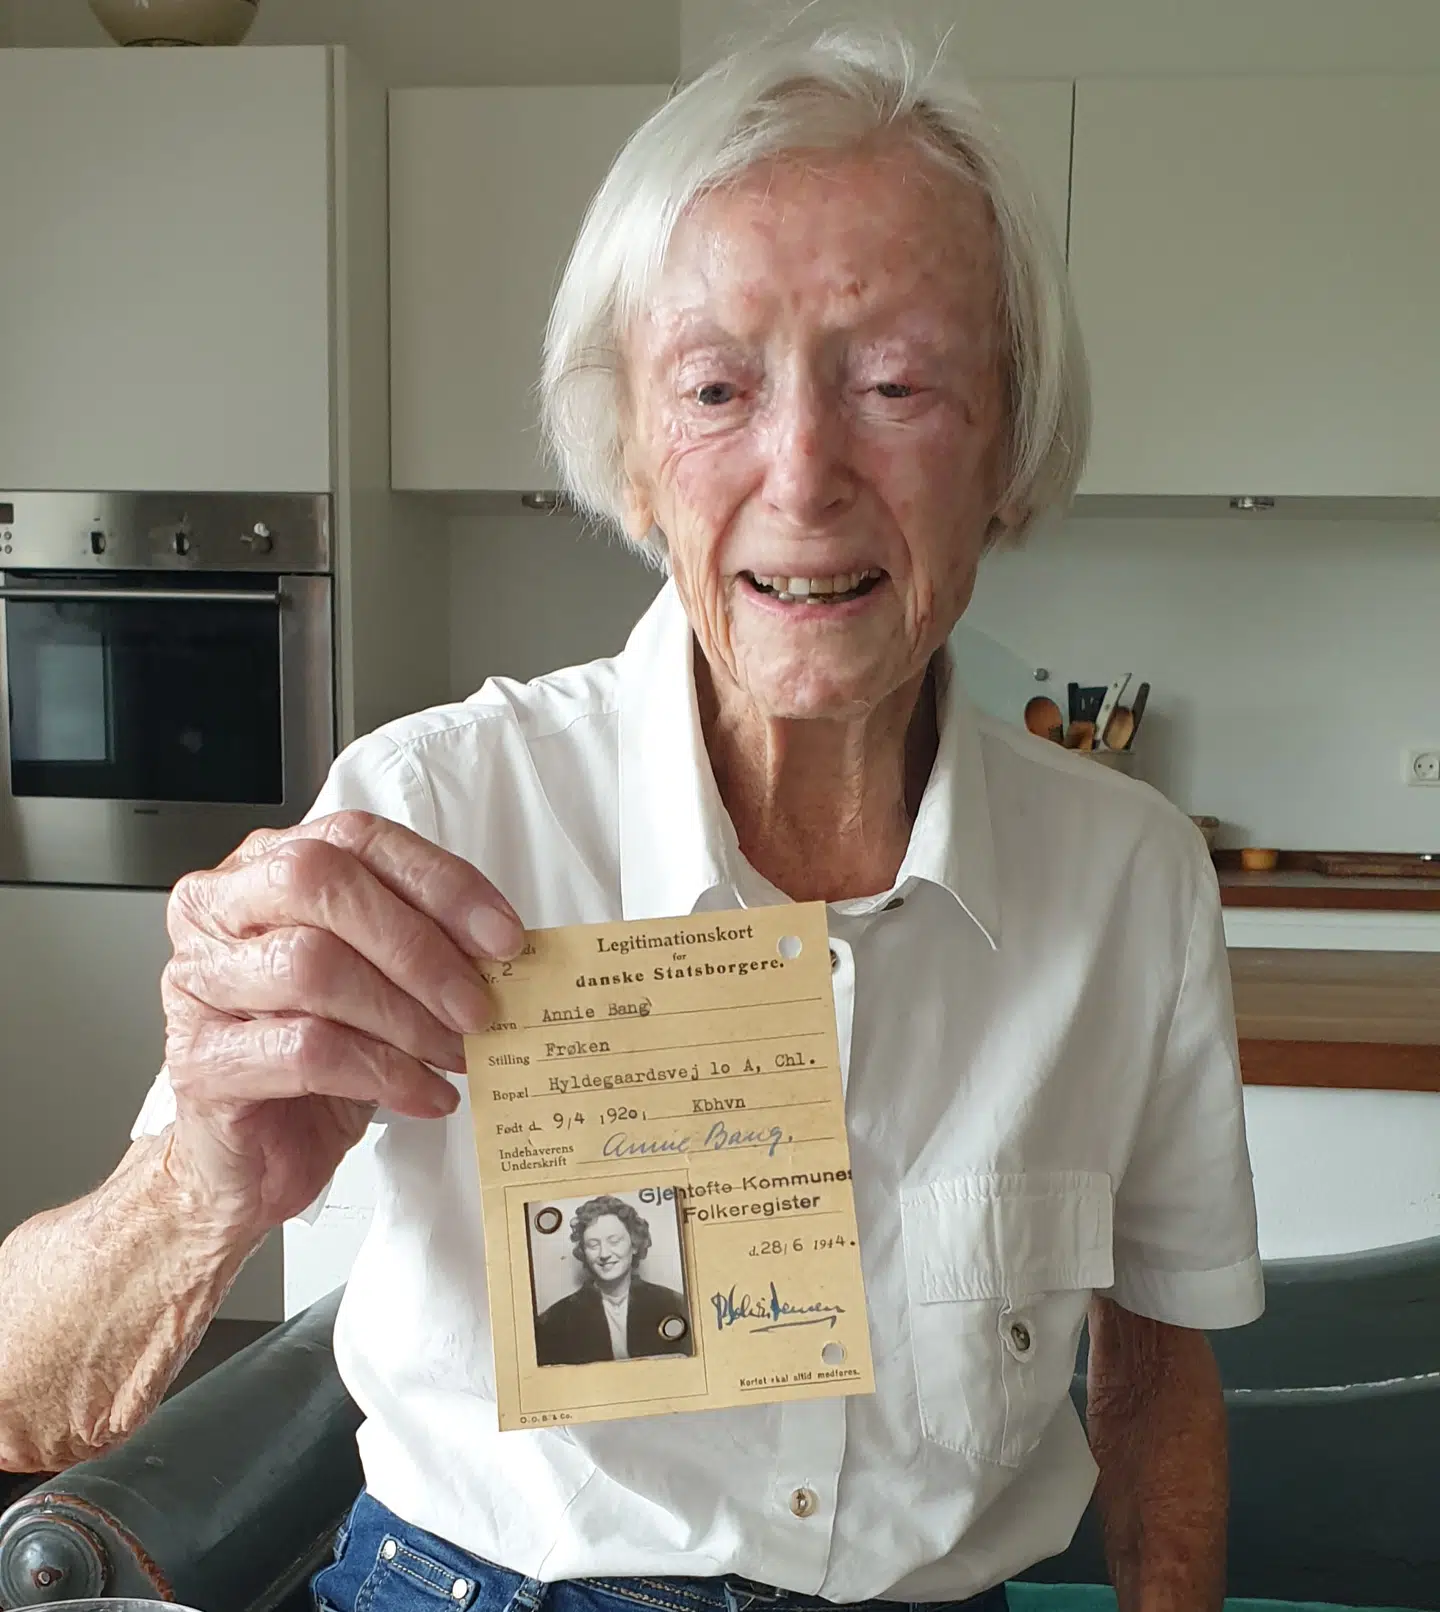 Legitimationskort
for
danske Statsborgere.
Nr. 2
Navn Annie Bang
Stilling Frøken
Bopæl Hyldegaardsvej 10 A, Chl.
Født d. 9/4 1920, Kbhvn
Indehaverens
Underskrift Annie Bang.
Gjentofte Kommunes
Folkeregister
d. 28/6 1944.
Kortet skal altid medføres.
O.O.B. & Co.